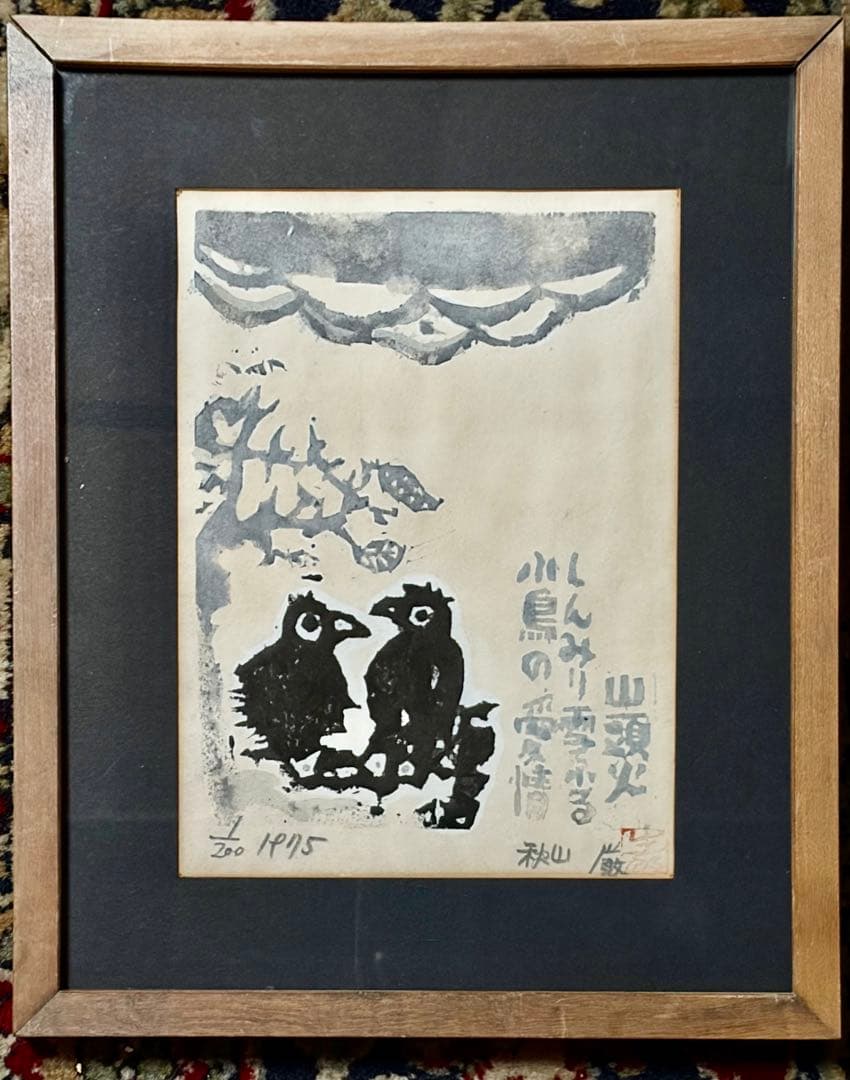 山頭火
しんみり雪ふる
小鳥の愛情
1/200 1975
秋山 巌